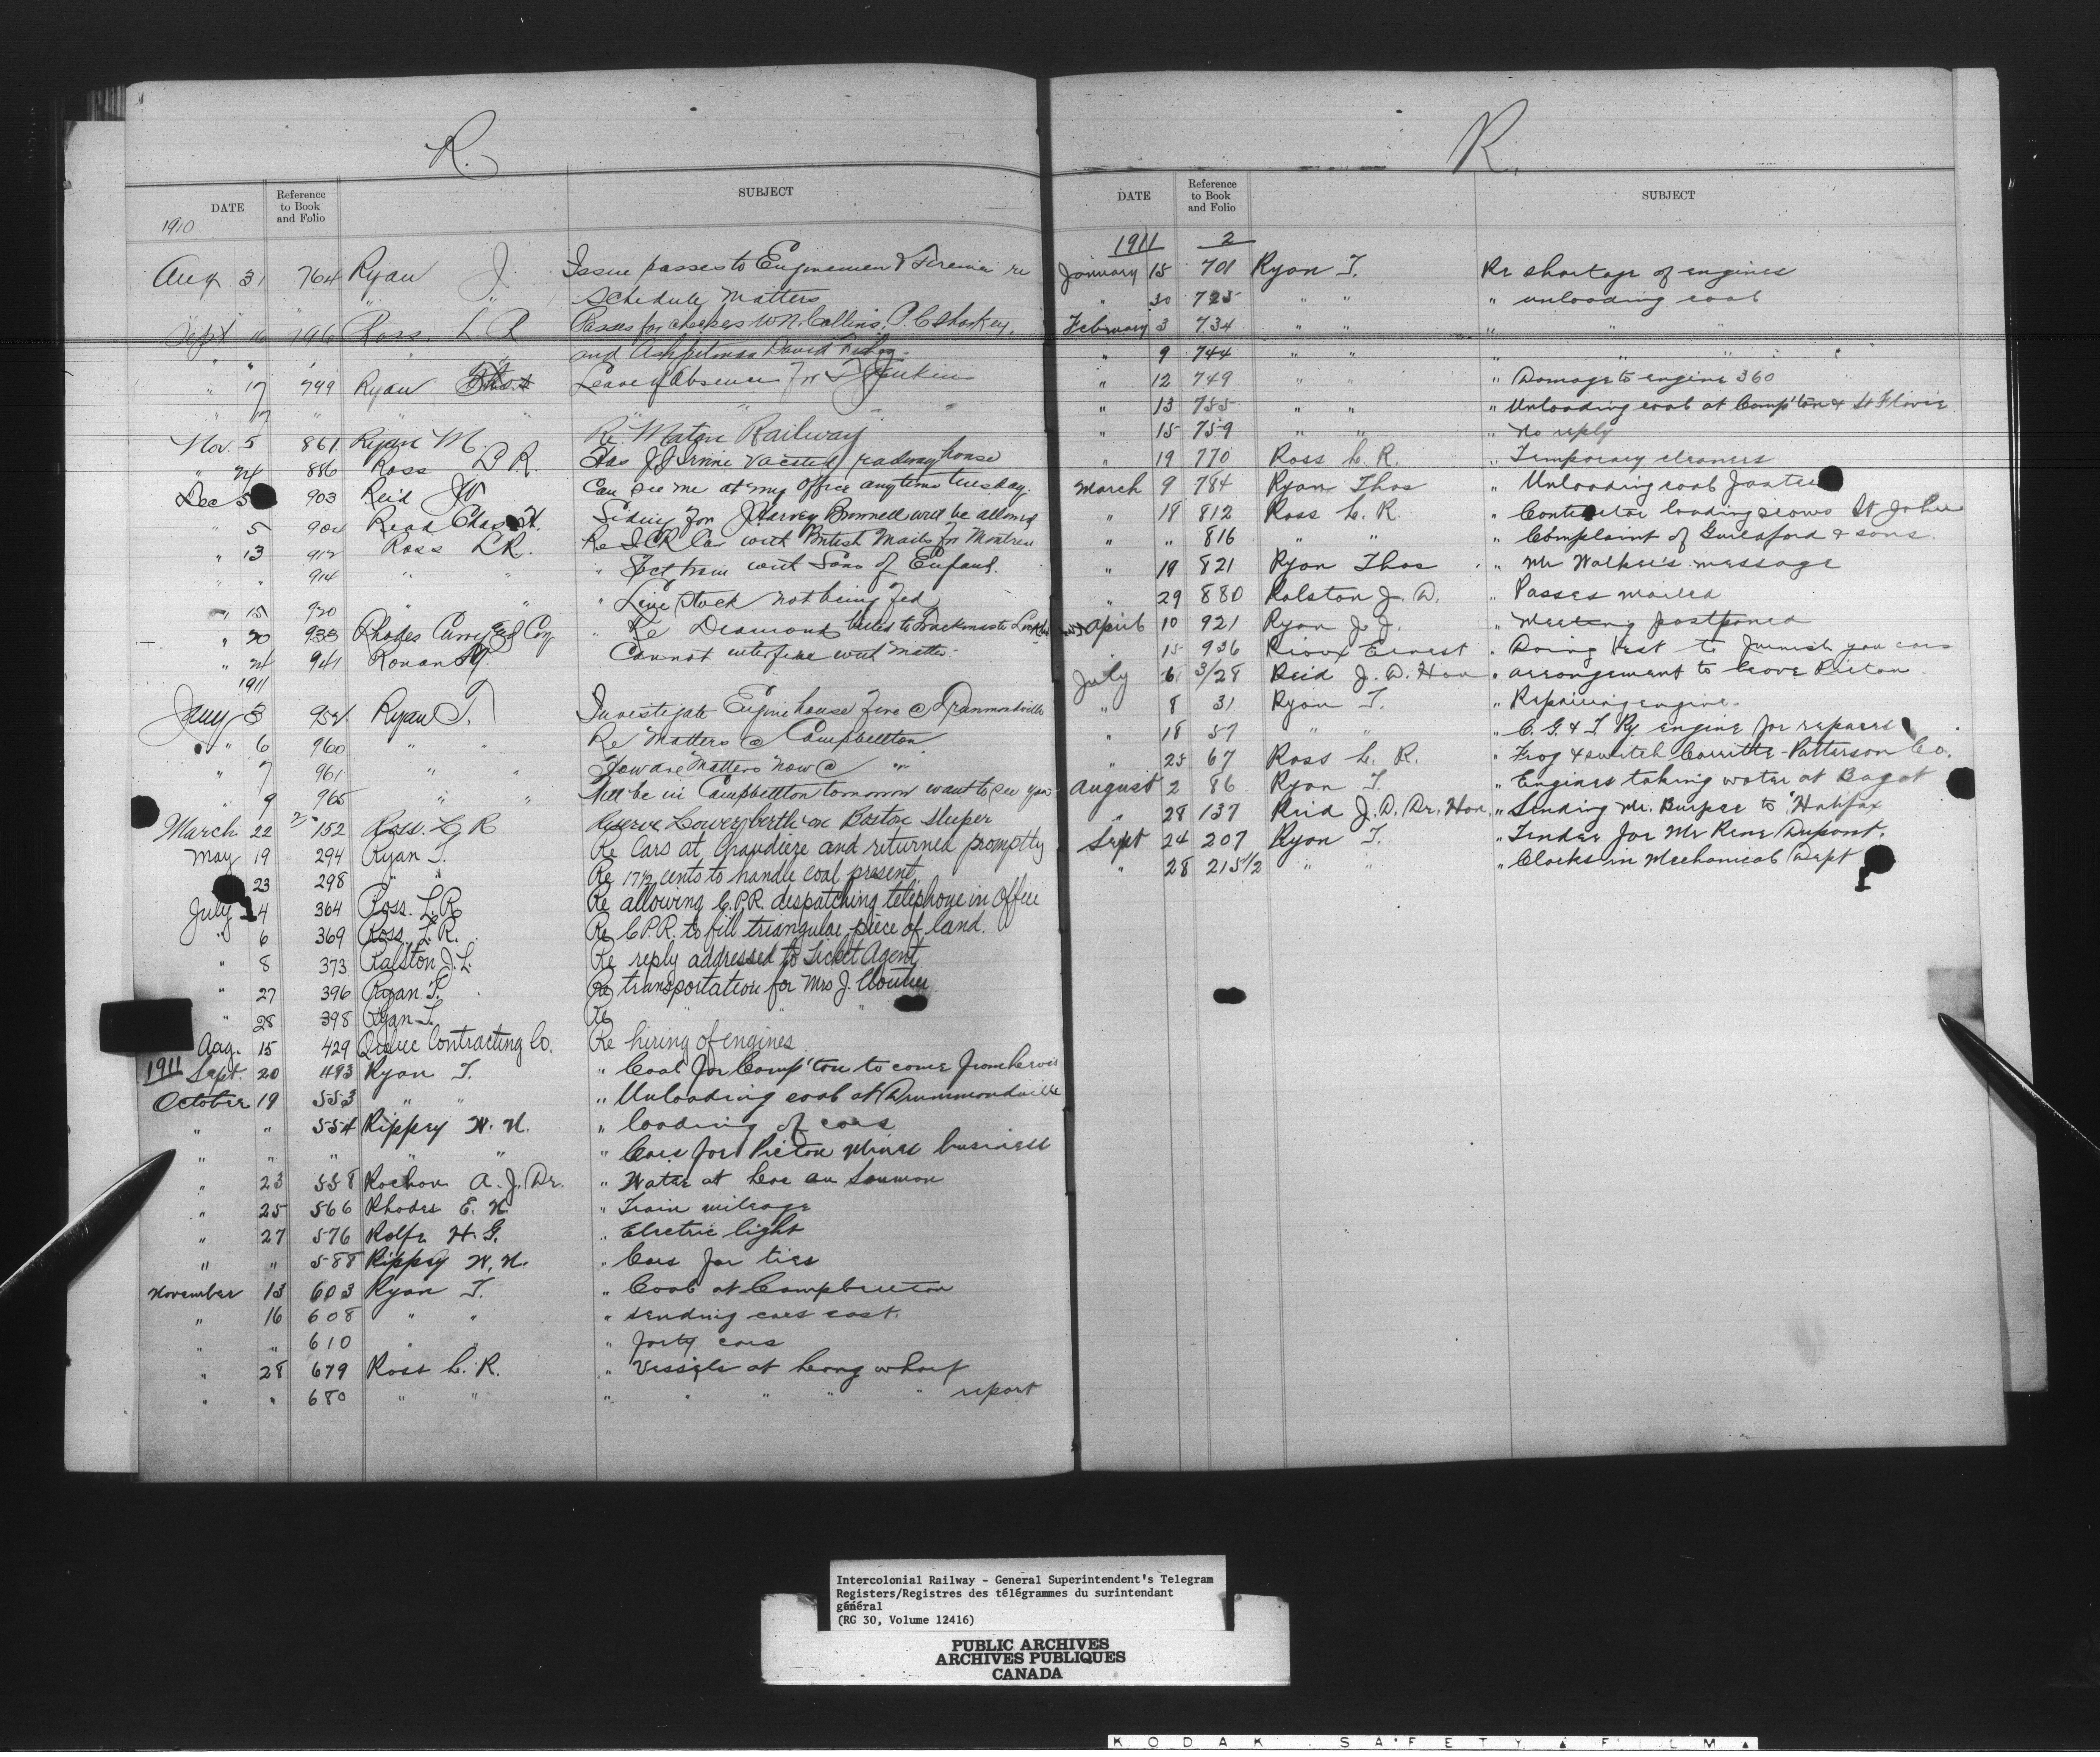 R.
DATE Reference to Book and Folio SUBJECT
1910
Aug 31 764 Ryan J. Issue passes to Enginemen & Firemen re
" " Schedule Matters
Sept 16 796 Ross. L R Passes for W N. Collins, P. C Sharkey,
" " " and Ashpitman David
" 17 799 Ryan Thos Leave of Absence for Jenkins
" 17 " " " " "
Nov. 5 861 Ryan M. Re Matane Railway
" 24 886 Ross L R. Has J J Irvine vacated railway house
Dec 5 903 Reid JW Can see me at my office anytime tuesday.
" 5 904 Read Chas H. Siding for J Harvey Brownell will be allowed
" 13 912 Ross LR. Re I.C.R. Car with British Mails for Montreal
" " 914 " " " train with Sons of England.
" 15 920 " " " Live Stock not being fed
" 20 933 Rhodes Curry & Coy " Re Diamonds billed to Trackmaster
" 24 941 Ronan Cannot interfere with matter.
1911
Jany 3 952 Ryan T. Investigate Engine house Fire @ Drummondville
" 6 960 " " Re Matters @ Campbellton
" 7 961 " " How are Matters now @ " "
" 9 965 " " Will be in Campbellton tomorrow want to see you
March 22 2/152 Ross. L R Reserve Lower berth on Boston Sleeper
May 19 294 Ryan T. Re Cars at Chaudiere and returned promptly
" 23 298 " " Re 17 1/2 cents to handle coal present
July 4 364 Ross. L. R. Re allowing C.P.R. dispatching telephone in office
" 6 369 Ross. L. R. Re C.P.R. to fill triangular piece of land.
" 8 373 Ralston J. L. Re reply addressed to Ticket Agent
" 27 396 Ryan T. Re transportation for Mrs J. Cloutier
" 28 398 Ryan T. Re " " "
Aug. 15 429 Quebec Contracting Co. Re hiring of engines
1911 Sept. 20 493 Ryan T. " Coal for Camp'ton to come from Levis
October 19 553 " " " Unloading coal at Drummondville
" " 554 Rippey W. N. " loading of cars
" " " " " " Cars for Pictou Mines business
" 23 558 Rochon A. J. Dr. " Water at Lac au Saumon
" 25 566 Rhodes E. N. " Train mileage
" 27 576 Rolfe H. G. " Electric light
" " 588 Rippey W. N. " Cars for ties
November 13 603 Ryan T. " Coal at Campbellton
" 16 608 " " " Sending cars east.
" " 610 " " " forty cars
" 28 679 Ross L. R. " Vessels at Long wharf
" " 680 " " " " " " " report
R.
DATE Reference to Book and Folio SUBJECT
1911 2
January 15 701 Ryan T. Re shortage of engines
" 30 725 " " " unloading coal
February 3 734 " " " " "
" 9 744 " " " " "
" 12 749 " " " Damage to engine 360
" 13 755 " " " Unloading coal at Camp'ton & St Flavie
" 15 759 " " " No reply
" 19 770 Ross L. R. " Temporary cleaners
March 9 784 Ryan Thos " Unloading coal
" 18 812 Ross L. R. " Contractor loading scows St John
" " 816 " " " Complaint of & sons.
" 19 821 Ryan Thos " Mr Walker's message
" 29 880 Ralston J. D. " Passes mailed
April 10 921 Ryan J. J. " Meeting postponed
" 15 936 Rioux Ernest " Doing best to furnish you cars
July 6 3/28 Reid J. D. Hon " arrangement to leave Pictou
" 8 31 Ryan T. " Repairing engine.
" 18 57 " " " C. G. & I Ry engine for repairs
" 25 67 Ross L. R. " Frog & switch Carritte-Patterson Co.
August 2 86 Ryan T. " Engines taking water at Bagot
" 28 137 Reid J. D. Dr. Hon. " Sending Mr. Burpee to Halifax
Sept 24 207 Ryan T. " Tender for Mr Rene Dupont.
" 28 215 1/2 " " " Clocks in Mechanical Dept
Intercolonial Railway - General Superintendent's Telegram
Registers/Registres des télégrammes du surintendant
général
(RG 30, Volume 12416)
PUBLIC ARCHIVES
ARCHIVES PUBLIQUES
CANADA
KODAK SAFETY FILM